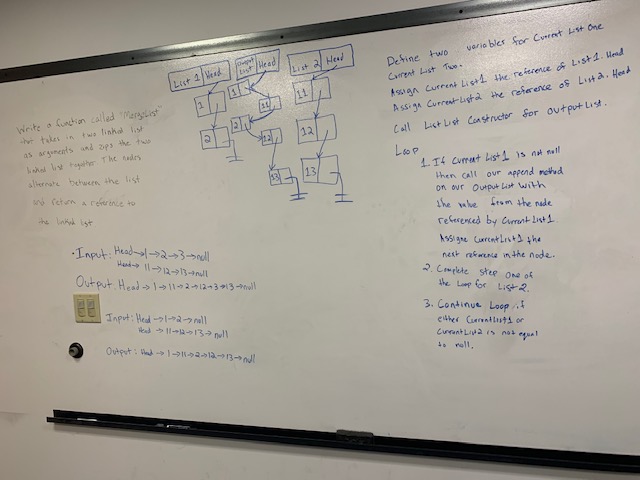 Write a function called "MergeList"
that takes in two linked list
as arguments and zips the two
linked list together. The nodes
alternate between the list
and return a reference to
the linked list
• Input: Head→1→2→3→null
Head→11→12→13→null
Output: Head→1→11→2→12→3→13→null
Input: Head→1→2→null
Head→11→12→13→null
Output: Head→1→11→2→12→13→null
List 1 Head
1
2
Output List Head
1
11
2
12
13
List 2 Head
11
12
13
Define two variables for Current List One
Current List Two.
Assign CurrentList1 the reference of List1.Head
Assign CurrentList2 the reference of List2.Head
Call ListList Constructor for OutputList.
Loop
1. If CurrentList1 is not null
then call our append method
on our OutputList with
the value from the node
referenced by CurrentList1
Assigne CurrentList1 the
next reference in the node.
2. Complete step one of
the Loop for List 2.
3. Continue Loop if
either CurrentList1 or
CurrentList2 is not equal
to null.